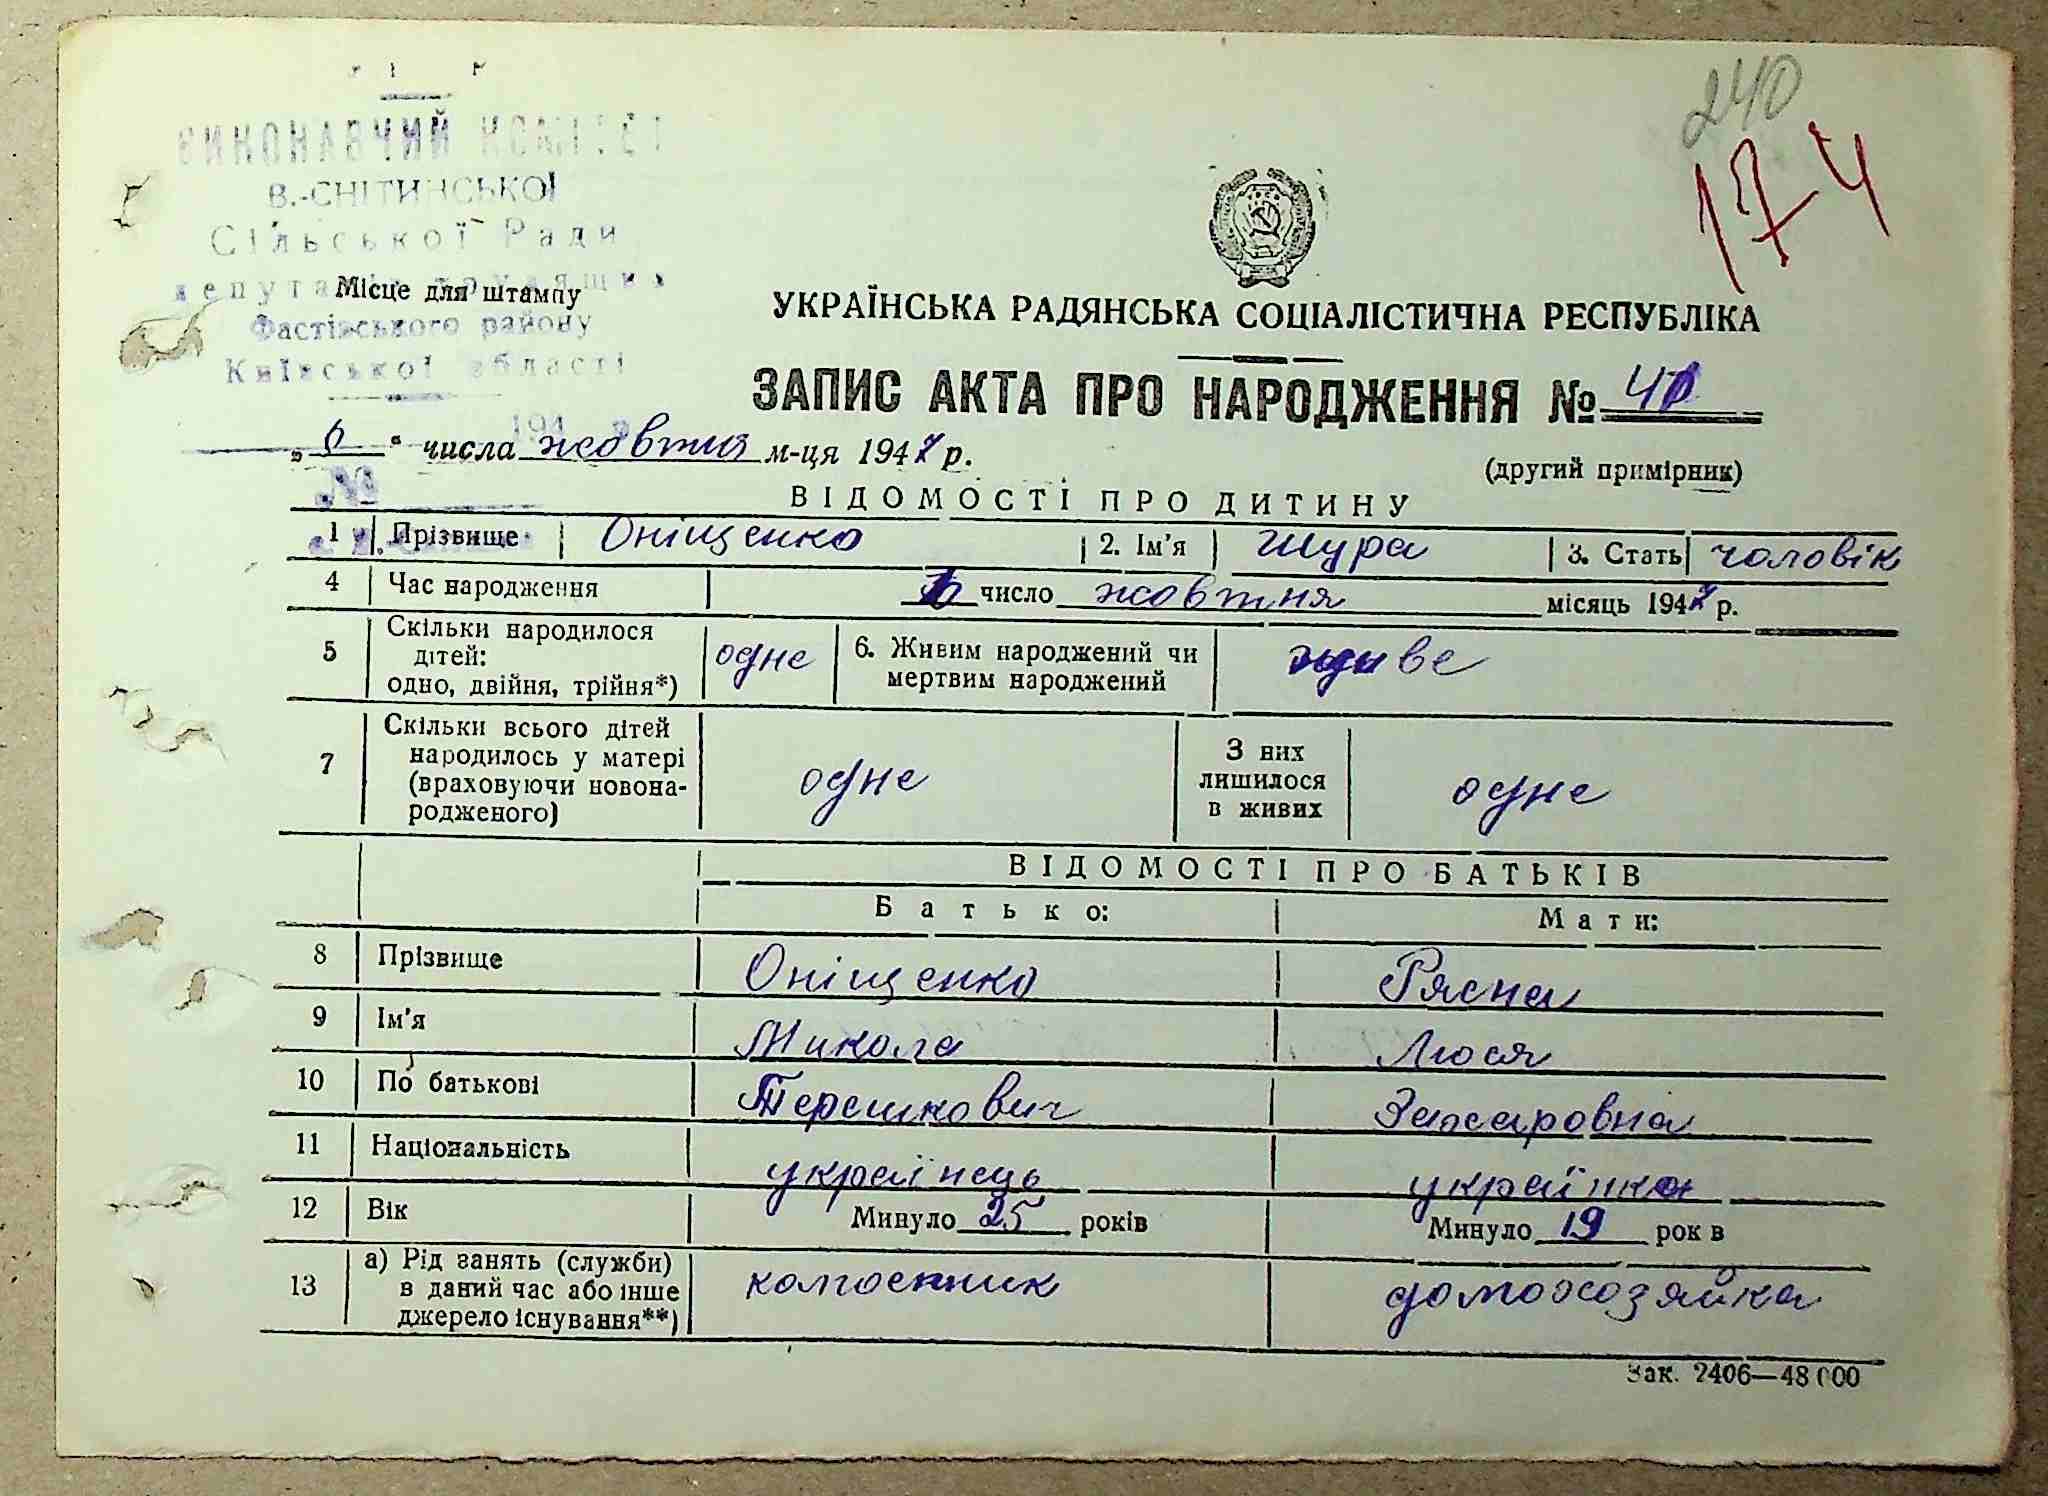 240
174
ВИКОНАВЧИЙ КОМІТЕТ
В.-СНІТИНСЬКОЇ
Сільської Ради
депутатів трудящих
Місце для штампу
Фастівського району
Київської області
194 р.
№
УКРАЇНСЬКА РАДЯНСЬКА СОЦІАЛІСТИЧНА РЕСПУБЛІКА
ЗАПИС АКТА ПРО НАРОДЖЕННЯ №
„ 6 " числа жовтня м-ця 1947 р.
(другий примірник)
ВІДОМОСТІ ПРО ДИТИНУ
1 Прізвище Оніщенко 2. Ім'я Шура 3. Стать чоловік
4 Час народження число жовтня місяць 1947 р.
5 Скільки народилося дітей: одно, двійня, трійня*) одне 6. Живим народжений чи мертвим народжений живе
7 Скільки всього дітей народилось у матері (враховуючи новонародженого) одне З них лишилося в живих одне
ВІДОМОСТІ ПРО БАТЬКІВ
Батько: Мати:
8 Прізвище Оніщенко Рясна
9 Ім'я Микола Люся
10 По батькові Терешкович Захаровна
11 Національність українець українка
12 Вік Минуло 25 років Минуло 19 рок в
13 а) Рід занять (служби) в даний час або інше джерело існування**) колгоспник домохозяйка
Зак. 2406—48 000